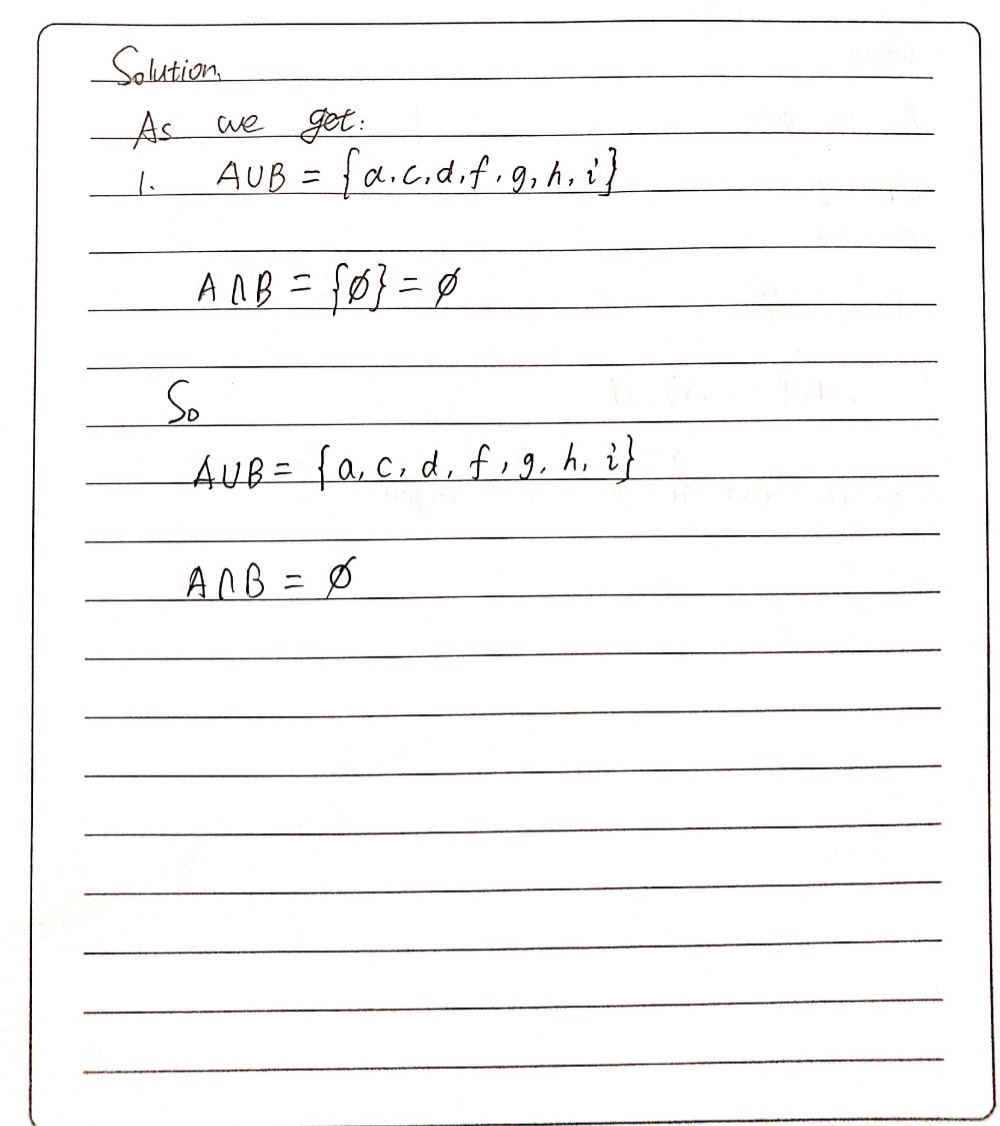 Solution.
As we get:
1. A∪B = {a, c, d, f, g, h, i}
A∩B = {∅} = ∅
So
A∪B = {a, c, d, f, g, h, i}
A∩B = ∅